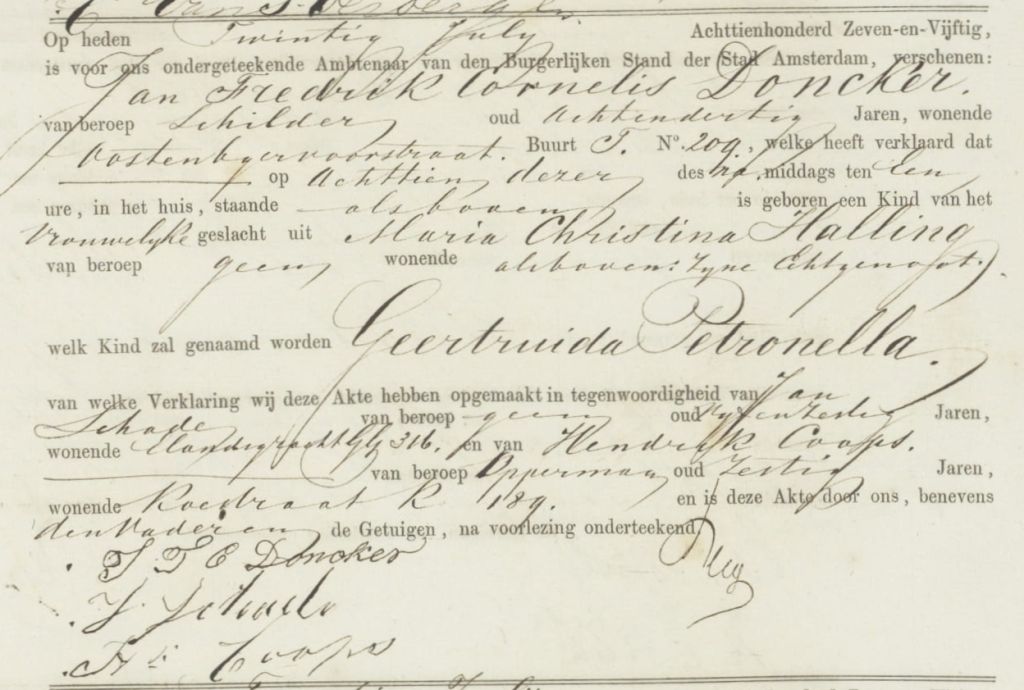 Op heden Twintig July Achttienhonderd Zeven-en-Vijftig,
is voor ons ondergeteekende Ambtenaar van den Burgerlijken Stand der Stad Amsterdam, verschenen:
Jan Fredrik Cornelis Doncker.
van beroep Schilder oud Achtendertig Jaren, wonende
Oostenburgervoorstraat. Buurt T. No. 209., welke heeft verklaard dat
op Achttien dezer des na middags ten Een
ure, in het huis, staande alsboven is geboren een Kind van het
Vrouwelyke geslacht uit Maria Christina Halling
van beroep geen wonende alsboven: Zyne Echtgenoot.
welk Kind zal genaamd worden Geertruida Petronella.
van welke Verklaring wij deze Akte hebben opgemaakt in tegenwoordigheid van Jan
Schade van beroep geen oud Vyfenzestig Jaren,
wonende Elandsgracht 316. en van Hendrik Coops.
van beroep Opperman oud Zestig Jaren,
wonende K 189. en is deze Akte door ons, benevens
den Vader en de Getuigen, na voorlezing onderteekend
J F C Doncker
J. Schade
Hk Coops